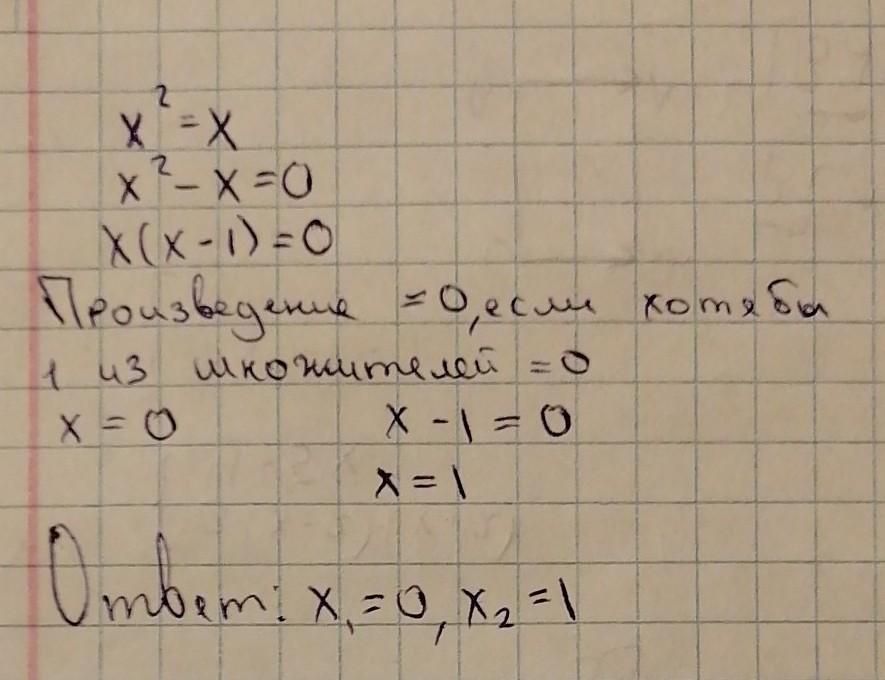 x² = x
x² - x = 0
x(x - 1) = 0
Произведение = 0, если хотя бы
1 из множителей = 0
x = 0 x - 1 = 0
x = 1
Ответ: x₁ = 0, x₂ = 1